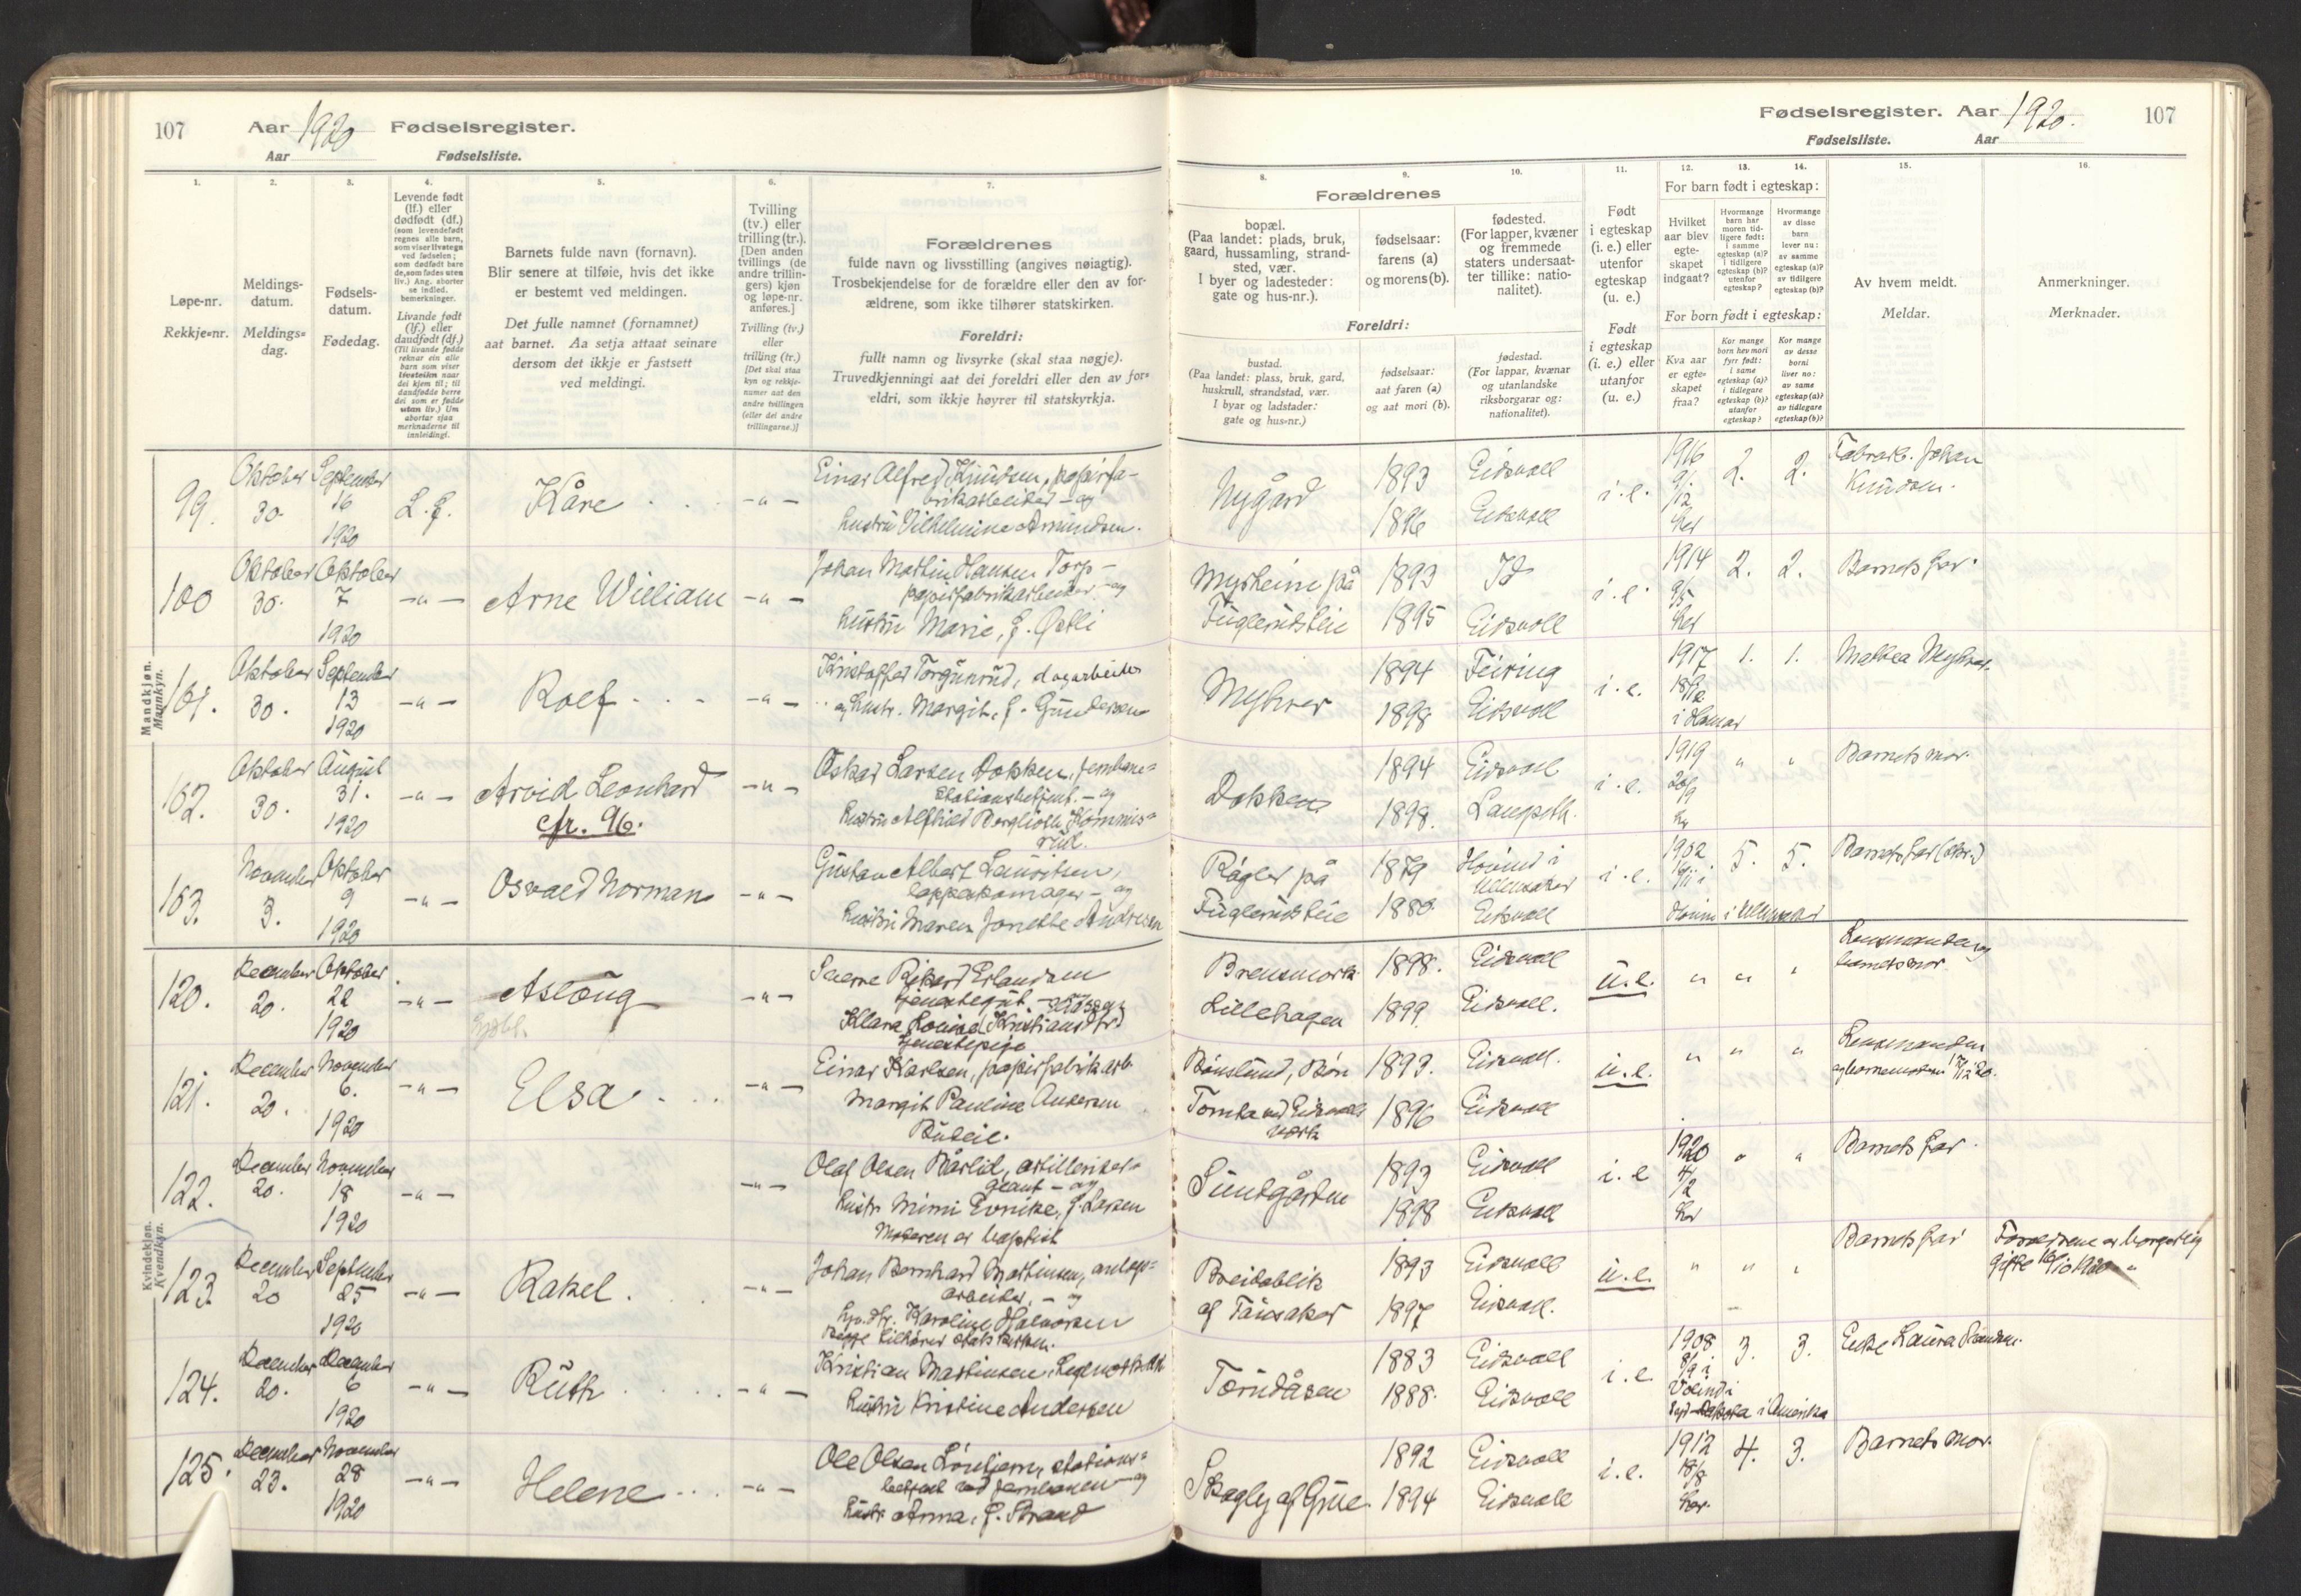 107 Aar 1920 Fødselsregister.
Aar Fødselsliste.
1. 2. 3. 4. 5. 6. 7.
Løpe-nr.
Rekkje-nr.
Meldings-
datum.
Meldings-
dag.
Fødsels-
datum.
Fødedag.
Levende født
(lf.) eller
dødfødt (df.)
(som levendefødt
regnes alle barn,
som viser livstegn
ved fødselen;
som dødfødt bare
de, som fødes uten
liv.) Ang. aborter
se indled.
bemerkninger.
Livande født
(lf.) eller
daudfødt (df.)
(Til livande fødde
reknar ein alle
barn som viser
livsteikn naar
dei kjem til; til
daudfødde berre
dei som er fødde
utan liv.) Um
abortar sjaa
merknaderne til
innleidingi.
Barnets fulde navn (fornavn).
Blir senere at tilføie, hvis det ikke
er bestemt ved meldingen.
Det fulle namnet (fornamnet)
aat barnet. Aa setja attaat seinare
dersom det ikkje er fastsett
ved meldingi.
Tvilling
(tv.) eller
trilling (tr.).
[Den anden
tvillings (de
andre trillin-
gers) kjøn
og løpe-nr.
anføres.]
Tvilling (tv.)
eller
trilling (tr.)
[Det skal staa
kyn og rekkje-
numer aat den
andre tvillingen
(eller dei andre
trillingarne.)]
Forældrenes
fulde navn og livsstilling (angives nøiagtig).
Trosbekjendelse for de forældre eller den av for-
ældrene, som ikke tilhører statskirken.
Foreldri:
fullt namn og livsyrke (skal staa nøgje).
Truvedkjenningi aat dei foreldri eller den av for-
eldri, som ikkje høyrer til statskyrkja.
Mandkjøn.
Mannkyn.
99. Oktober 30. September 16 1920 L. f. Kåre -"-
Einar Alfred Knudsen, papirfa-
brikarbeider - og
hustru Vilhelmine Amundsen.
100 Oktober 30. Oktober 7 1920 -"- Arne William -"-
Johan Martin Hansen Torp -
papirfabrikarbeider - og
hustru Marie, f. Østli
101. Oktober 30. September 13 1920 -"- Rolf -"-
Kristoffer Torgunrud, dagarbeider
og hustr. Margit, f. Gundersen
102. Oktober 30. August 31. 1920 -"- Arvid Leonhard -"-
cfr. 96.
Oskar Larsen Dokken, jernbane-
stationsbetjent. - og
103. November 3. Oktober 9 1920 -"- Osvald Norman -"-
Gustav Albert Lauritsen,
lappeskomager - og
hustru Maren Jonette Andresen
Kvindekjøn.
Kvendkyn.
120. December 20. Oktober 22 1920 -"- Aslaug -"-
Sverre Rikard Erlandsen
tjenestegut
Klara Lovise Kristiansdtr.
tjenestepige
121. December 20. November 6. 1920 -"- Elsa -"-
Einar Karlsen, papirfabrikarb.
Margit Pauline Andersen
Budeie.
122. December 20. November 18 1920 -"- -"-
Olaf Olsen Bårlid, artilleriser-
geant - og
hustr. Mimi Evnike, f. Larsen
Moderen er baptist
123. December 20 September 25 1920 -"- Rakel. -"-
Johan Bernhard Martinsen, anlegs-
arbeider, - og
Karoline Halvorsen
Begge tilhører statskirken.
124. December 20. December 6 1920 -"- Ruth -"-
Kristian Martinsen
hustru Kristine Andersen
125. December 23. November 28 1920 -"- Helene -"-
Ole Olsen Løntjern, stations-
betjent ved jernbanen - og
hustr. Anna, f. Strand
Fødselsregister. Aar 1920. 107
Fødselsliste. Aar
8. 9. 10. 11. 12. 13. 14. 15. 16.
Forældrenes
bopæl.
(Paa landet: plads, bruk,
gaard, hussamling, strand-
sted, vær.
I byer og ladesteder:
gate og hus-nr.).
fødselsaar:
farens (a)
og morens (b).
fødested.
(For lapper, kvæner
og fremmede
staters undersaat-
ter tillike: natio-
nalitet).
Foreldri:
bustad.
(Paa landet: plass, bruk, gard,
huskrull, strandstad, vær.
I byar og ladstader:
gate og hus-nr.)
fødselsaar:
aat faren (a)
og aat mori (b).
fødestad.
(For lappar, kvænar
og utanlandske
riksborgarar og:
nationalitet).
Født
i egteskap
(i. e.) eller
utenfor
egteskap
(u. e.)
Født
i egteskap
(i. e.) eller
utanfor
(u. e.)
For barn født i egteskap:
Hvilket
aar blev
egte-
skapet
indgaat?
Hvormange
barn har
moren tid-
ligere født:
i samme
egteskap (a)?
i tidligere
egteskap (b)?
utenfor
egteskap?
Hvormange
av disse
barn
lever nu:
av samme
egteskap (a)?
av tidligere
egteskap (b)?
For born født i egteskap:
Kva aar
er egte-
skapet
fraa?
Kor mange
born hev mori
fyrr født:
i same
egteskap (a)?
i tidlegare
egteskap (b)?
utanfor
egteskap?
Kor mange
av desse
borni
liver no:
av same
egteskap (a)?
av tidlegare
egteskap (b)?
Av hvem meldt.
Meldar.
Anmerkninger.
Merknader.
Nygård 1893 1896 Eidsvoll Eidsvoll i. e. 1916 9/12 her 2. 2. Fabrarb. Johan
Knudsen.
Myrheim på
Fuglerudsteie 1893 1895 Id Eidsvoll i. e. 1914 9/5 her 2. 2. Barnets far.
Myhrer 1894 1898 Feiring Eidsvoll i. e. 1917 i Hamar 1. 1. Mathea Myhrer.
Dokken 1894 1898. Eidsvoll Langseth. i. e. 1919 " " Barnets mor.
Rågler på
Fuglerudsteie 1879 1880. Hovind i
Ullensaker Eidsvoll i. e. 1902 5. 5. Barnets far
Hovin i Ullensaker
Brensmork
Lillehagen 1898. 1899. Eidsvoll Eidsvoll. u. e. " " " Lensmanden og
barnets mor.
Bønslund, Bøn
Tomta ved Eidsvolls
værk 1893. 1896 Eidsvoll. Eidsvoll u. e. " " " Lensmanden
og barnemoren 17/12 20.
Sundgården 1893 1898 Eidsvoll Eidsvoll i. e 1920 4/2 her " " Barnets far.
Breidablik
af Tæruaker 1893 1897 Eidsvoll Eidsvoll. u. e. " " " Barnets far
Forældrene er borgerlig
gifte
Tærudåsen 1883 1888. Eidsvoll Eidsvoll i. e. 1908 3. 3. Enke Laura
i Amerika
Skogly af Grue. 1892 1894 Eidsvoll Eidsvoll i. e. 1912 18/8 her. 4. 3. Barnets mor.